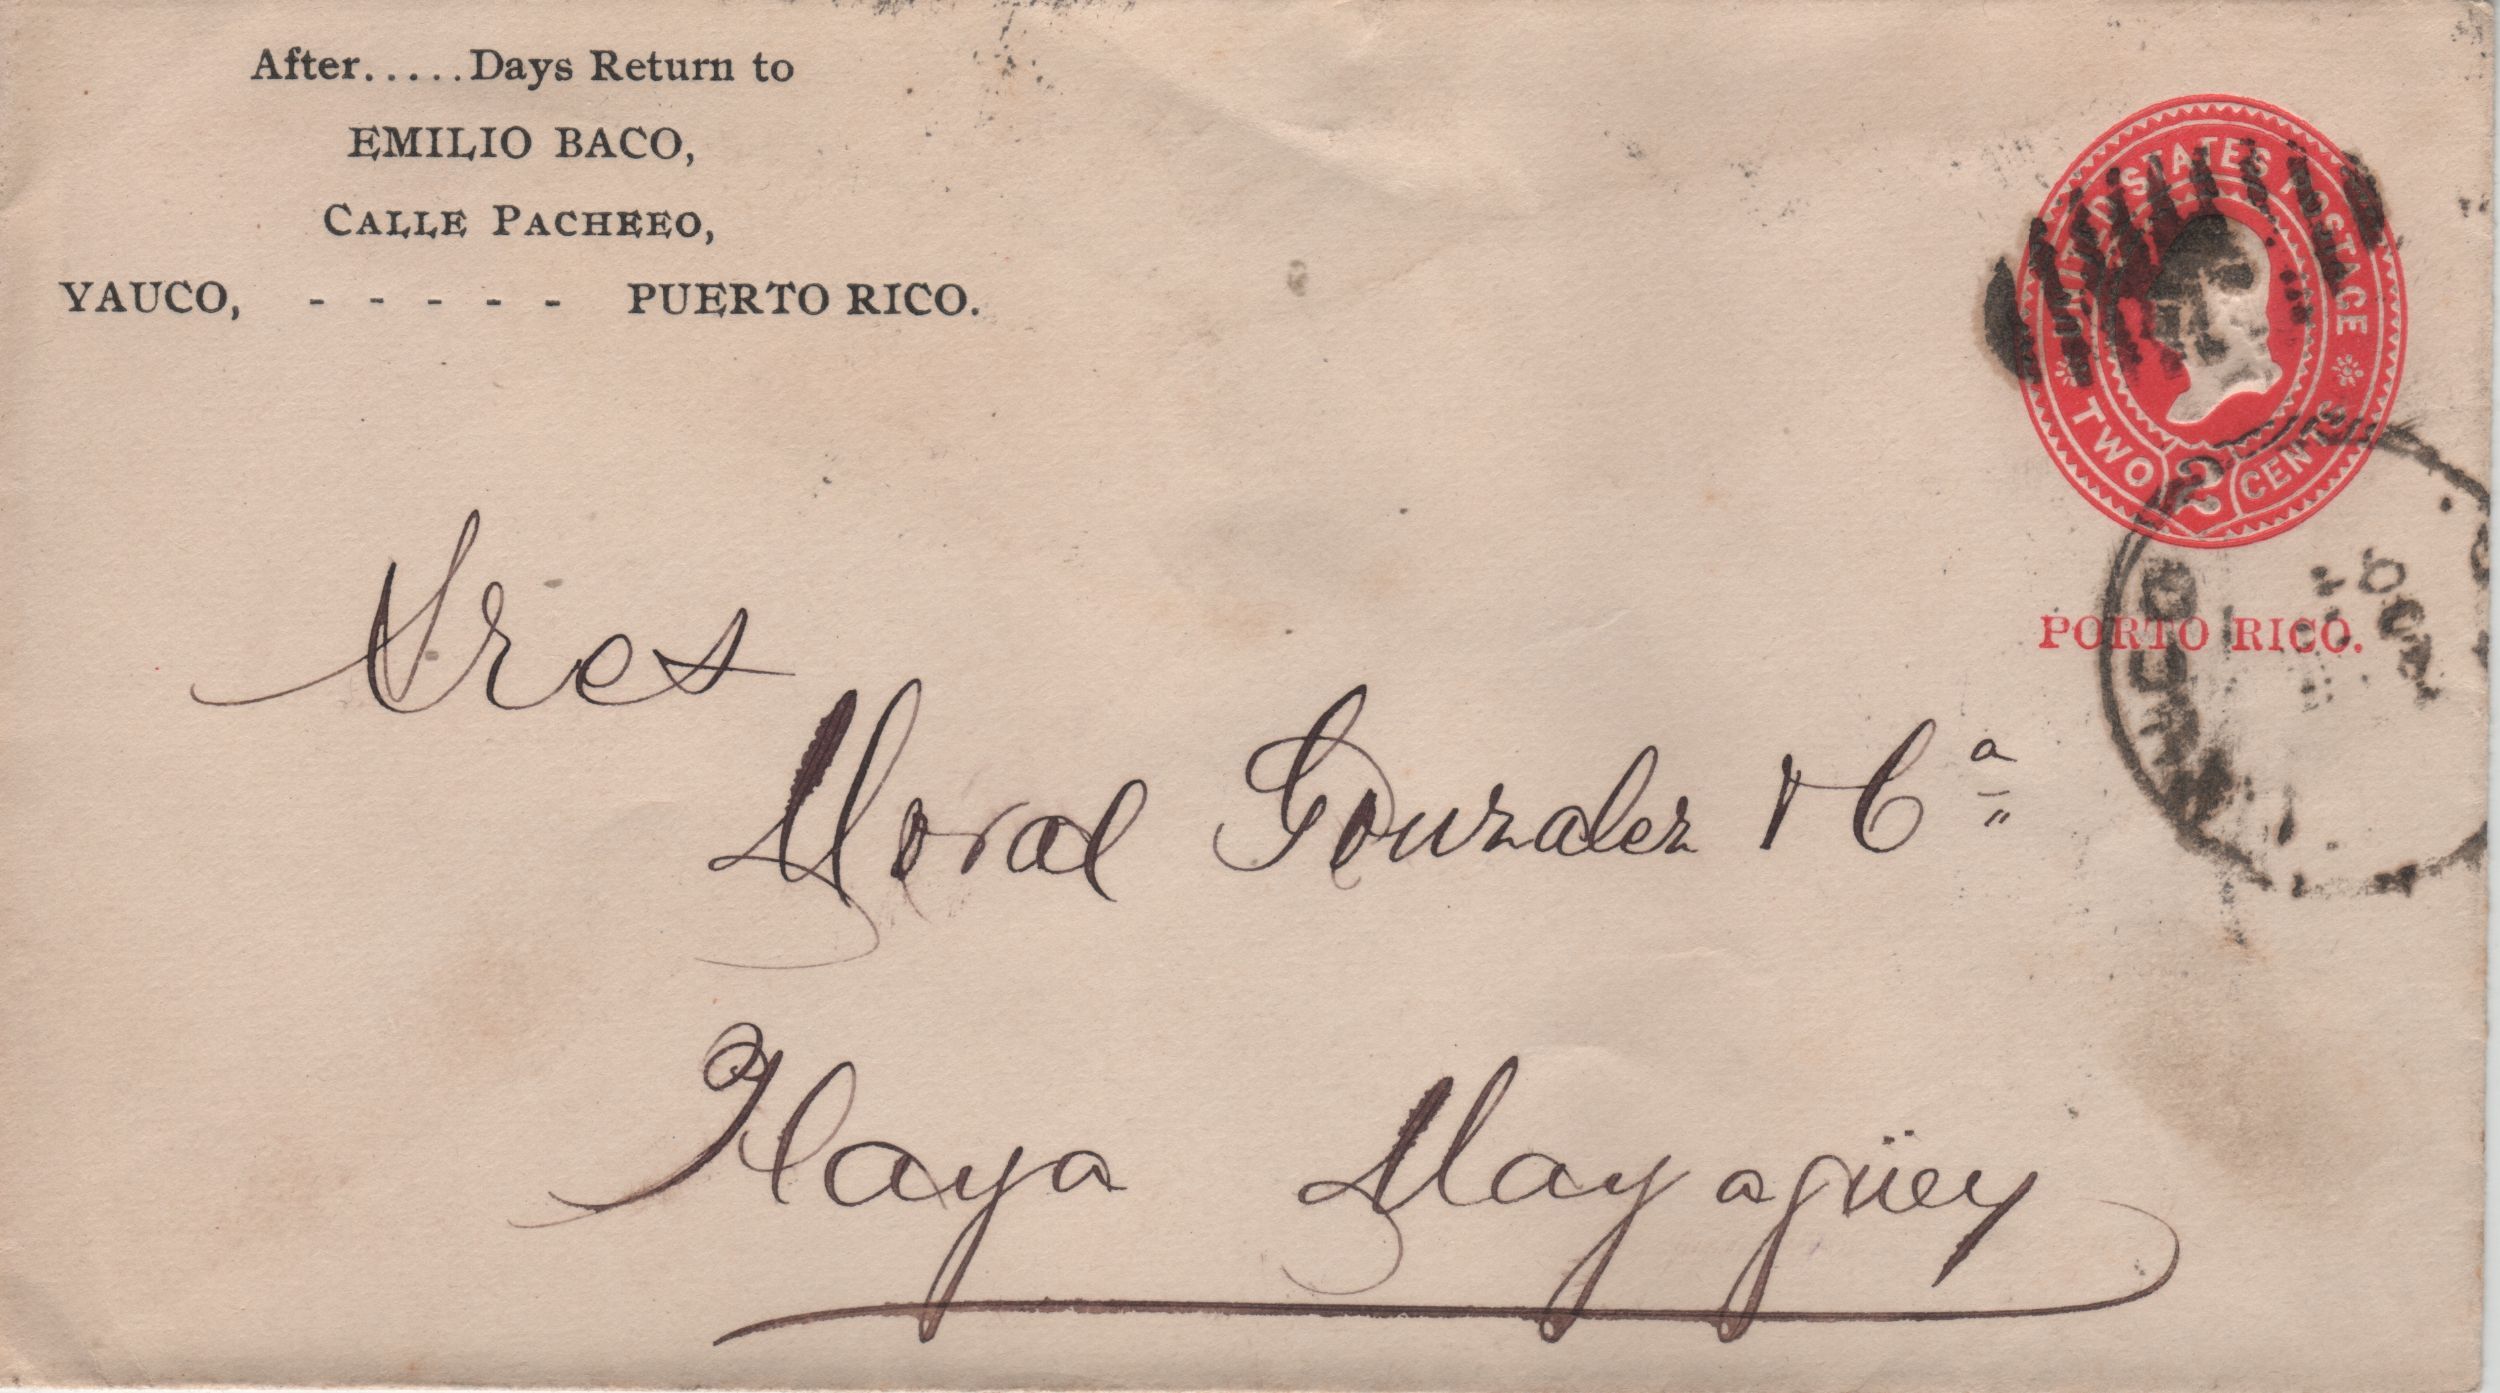 After.....Days Return to
EMILIO BACO,
CALLE PACHEEO,
YAUCO, - - - - - PUERTO RICO.
UNITED STATES POSTAGE
TWO 2 CENTS
PORTO RICO.
Sres
Moral Gonzalez & Cª
Playa Mayagüez